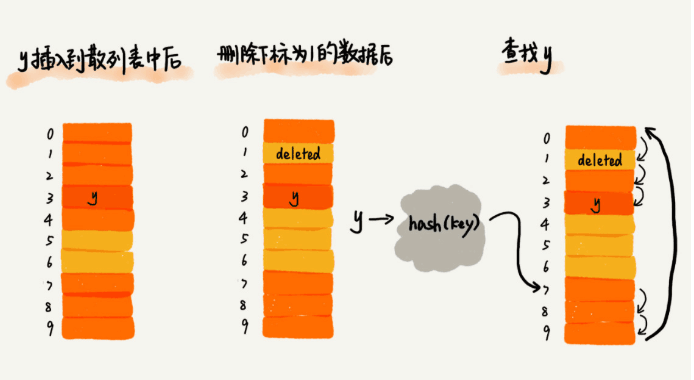 y插入到散列表中后
0
1
2
3 y
4
5
6
7
8
9
删除下标为1的数据后
0
1 deleted
2
3 y
4
5
6
7
8
9
y → hash(key)
查找y
0
1 deleted
2
3 y
4
5
6
7
8
9